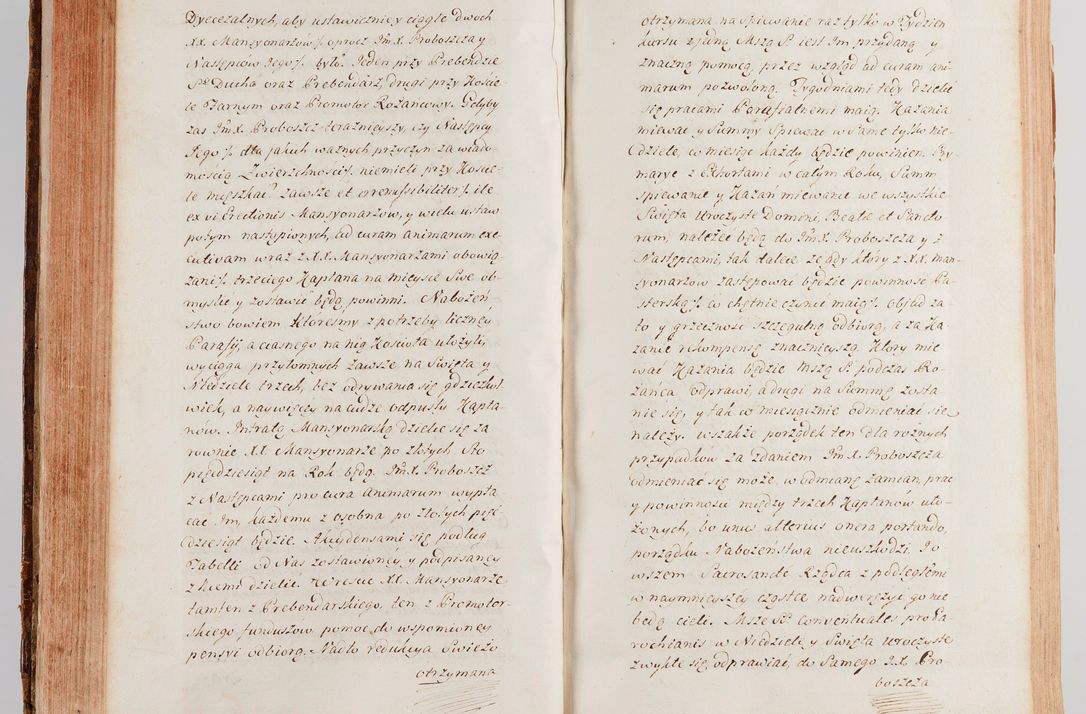 Dyecezalnych, aby ustawicznie y ciągle dwoch
XX. Mansyonarzow /: oprocz Jm X. Proboszcza y
Następcow Jego :/ było. Jeden przy Prebendzie
S. Ducha oraz Prebendarz, drugi przy Kościele
Farnym oraz Promotor Rożańcowy. Gdyby
zas Jm X. Proboszcz teraznieyszy, czy Następcy
Jego :/ dla jakich ważnych przyczyn za wiado-
mością Zwierzchności :/ niemieli przy Koście-
le mięszkać? zawsze et irremissibiliter /: ile
ex vi Erectionis Mansyonarzow, y wielu ustaw
potym nastąpionych, ad curam animarum exe-
cutivam wraz z XX. Mansyonarzami obowią-
zani :/ trzeciego Kapłana na mieysce Swe ob-
myslić y zostawić będą powinni. Nabożeń-
stwo bowiem ktoreśmy z potrzeby liczney
Parafij, a ciasnego na nię Kościoła ułożyli,
wyciąga przytomnych zawsze na Święta y
Niedziele trzech, bez odrywania się gdzieżkol
wiek, a naywięcey na cudze odpusty Kapła-
now. Intratą Mansyonarską dzielić się za
rownie XX. Mansyonarze po złotych Sto
pięćdziesiąt na Rok będą. Jm X. Proboszcz
z Następcami pro cura animarum wypła-
cać Im, każdemu z osobna po złotych pięć
dziesiąt będzie. Akcydensami się podług
Tabelli od Nas zostawioney, y podpisaney
z Niemi dzielić. Nareszcie XX. Mansyonarze
tamten z Prebendarskiego, ten z Promotor-
skiego funduszow pomoc do wspomioney
pensyi odbiorą. Nadto redukcya świeżo
otrzymana
otrzymana na Spiewanie raz tylko w Tydzien
kursu z jedną Mszą S. iest Im przydaną y
znaczną pomocą, przez wzgląd ad curam ani-
marum pozwoloną. Tygodniami tedy dzielić
się pracami Parafialnemi maią. Kazania
miewac y Summy Spiewac w Same tylko nie-
dziele, co miesiąc każdy będzie powinien. Pry-
marye z Exhortami w całym Roku, Summ
spiewanie y Kazań miewanie we wszystkie
Święta Uroczyste Domini, Beatæ et Sancto-
rum, należeć będą do Jm X. Proboszcza y z
Następcami, tak takie ze gdy ktory z XX. Man-
syonarzow zastępować będzie powinność Pa-
sterską /: co chętnie czynić maią :/. Objad za
to y grzeczność szczegulną odbiorą, a za Ka-
zanie rekompensę znacznieyszą. Ktory mie
wać Kazania będzie Mszą S. podczas Ro-
żańca odprawi, a drugi na Summę zosta-
nie się, y tak co miesięcznie odmieniać się
należy. Wszakże porządek ten dla rożnych
przypadkow za zdaniem Jm X. Proboszcza
odmieniać się może, w odmianę zamian, prac
y powinności między trzech Kapłanow uło-
żonych, bo unus alterius onera portando,
porządku Nabożeństwa nieuszkodzi. Jo
wszem Sacrosancte Rządca z podległemi
w naymnieyszey cząstce nadwerężyć go nie
będą cieli. Msze SS. conventuales pro Pa-
rochianis w Niedziele y Święta Uroczyste
zwykłe się odprawiać, do Samego JX. Pro-
boszcza